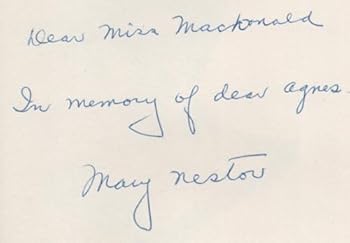 Dear Miss Mackonald
In memory of dear agnes.
Mary Nestor